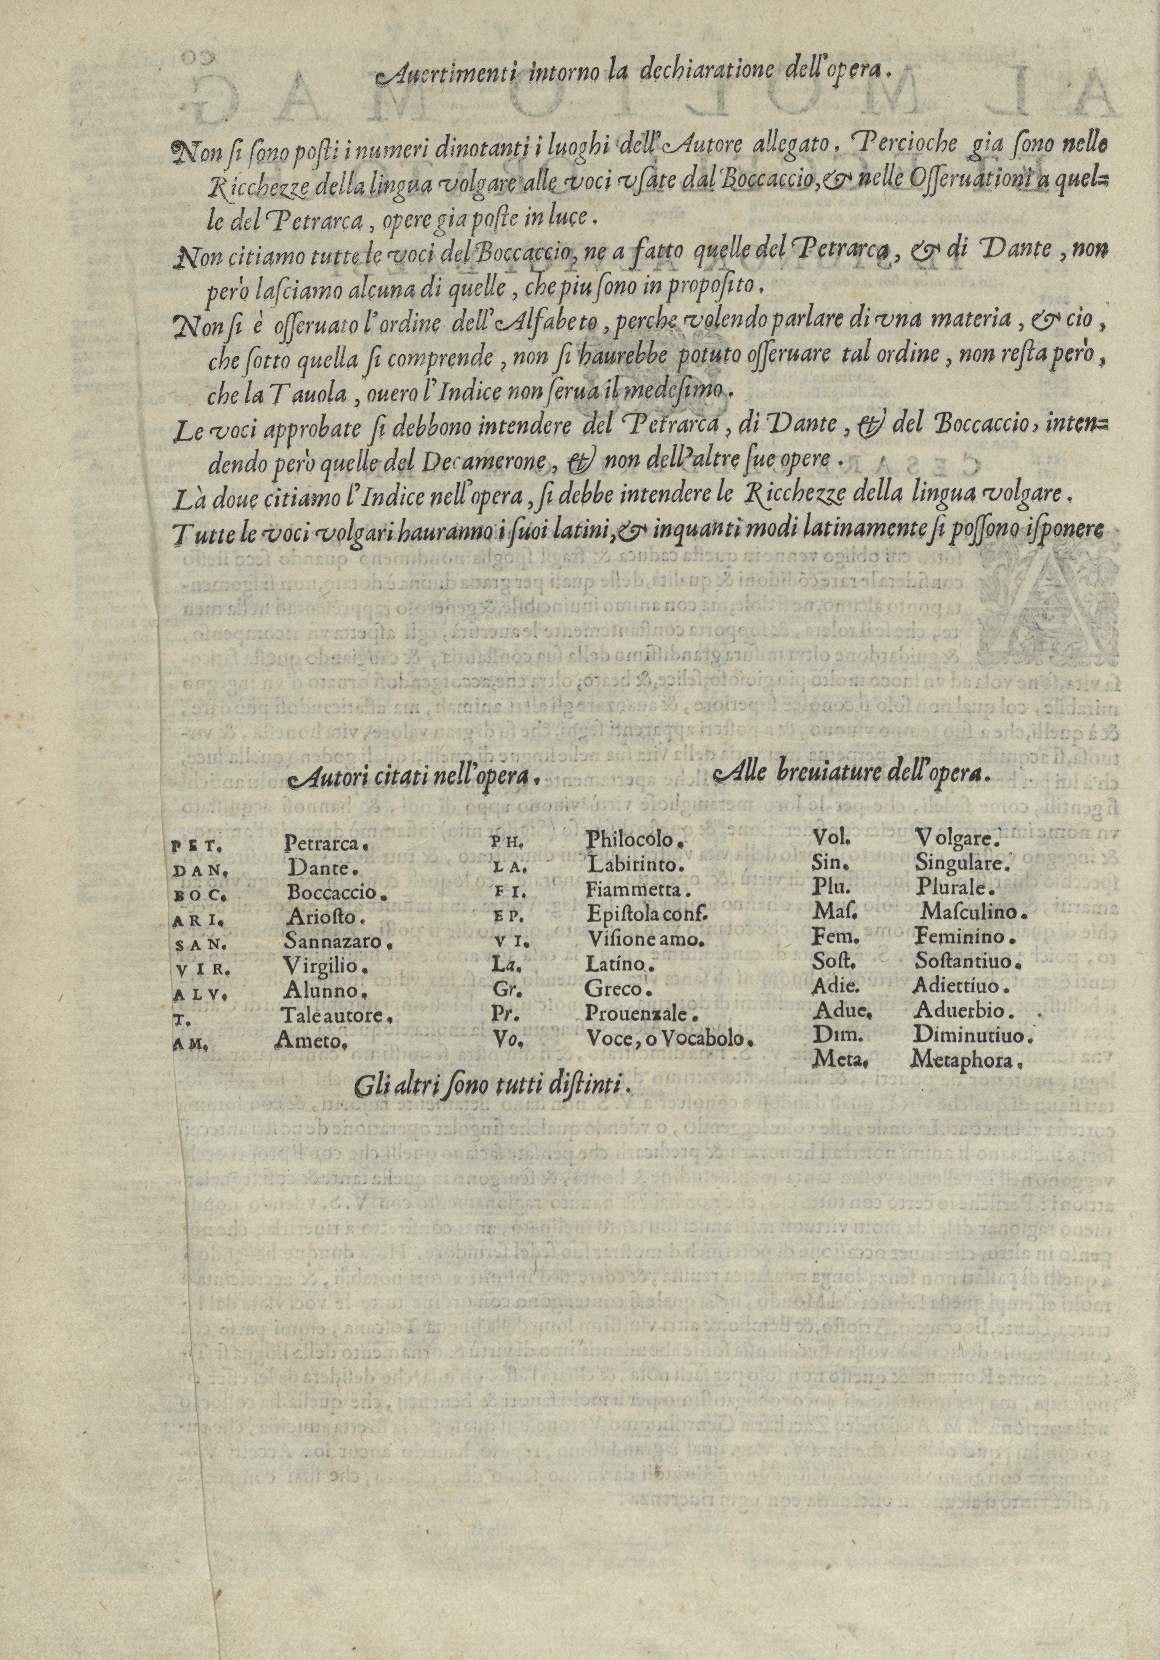 Auertimenti intorno la dechiaratione dell'opera.
Non ſi ſono poſti i numeri dinotanti i luoghi dell'Autore allegato. Percioche gia ſono nelle
Ricchezze della lingua volgare alle voci vſate dal Boccaccio, & nelle Oſſeruationi a quel=
le del Petrarca, opere gia poſte in luce.
Non citiamo tutte le voci del Boccaccio, ne a fatto quelle del Petrarca, & di Dante, non
però laſciamo alcuna di quelle, che piu ſono in propoſito.
Non ſi è oſſeruato l'ordine dell'Alfabeto, perche volendo parlare di vna materia, & cio,
che ſotto quella ſi comprende, non ſi haurebbe potuto oſſeruare tal ordine, non reſta però,
che la Tauola, ouero l'Indice non ſerua il medeſimo.
Le voci approbate ſi debbono intendere del Petrarca, di Dante, & del Boccaccio, inten=
dendo però quelle del Decamerone, & non dell'altre ſue opere.
Là doue citiamo l'Indice nell'opera, ſi debbe intendere le Ricchezze della lingua volgare.
Tutte le voci volgari hauranno i ſuoi latini, & inquanti modi latinamente ſi poſſono iſponere
Autori citati nell'opera.
PET. Petrarca.
DAN. Dante.
BOC. Boccaccio.
ARI. Arioſto.
SAN. Sannazaro.
VIR. Virgilio.
ALV. Alunno.
T. Tale autore.
AM. Ameto.
PH. Philocolo.
LA. Labirinto.
FI. Fiammetta.
EP. Epiſtola conſ.
VI. Viſione amo.
La. Latino.
Gr. Greco.
Pr. Prouenzale.
Vo. Voce, o Vocabolo.
Gli altri ſono tutti diſtinti.
Alle breuiature dell'opera.
Vol. Volgare.
Sin. Singulare.
Plu. Plurale.
Maſ. Maſculino.
Fem. Feminino.
Soſt. Soſtantiuo.
Adie. Adiettiuo.
Adue. Aduerbio.
Dim. Diminutiuo.
Meta. Metaphora.